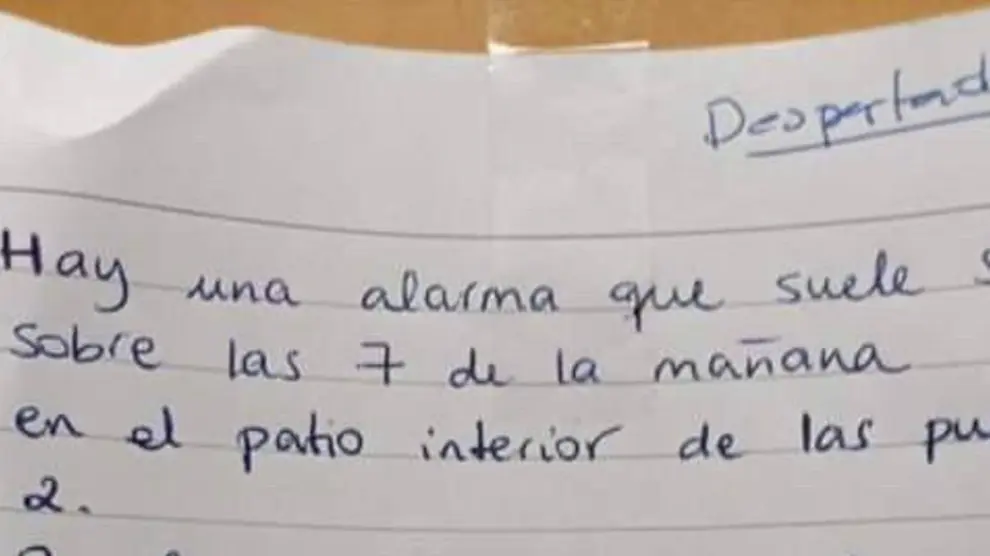 Despertad
Hay una alarma que suele s
Sobre las 7 de la mañana
en el patio interior de las pu
2.